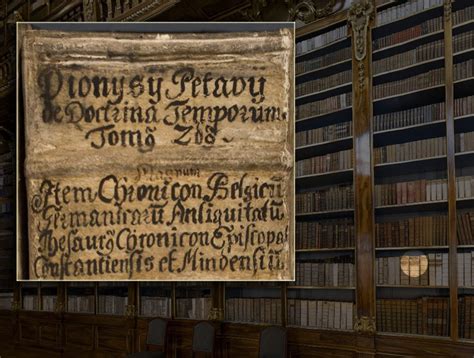 Dionysÿ Petavÿ
de Doctrina Temporum.
Tomg Zdg
Magnum
Item Chronicon Belgicū
Germanicarū Antiquitatū
Thesaurg Chronicon Episcopat
Constanciensis et Mindensiū.